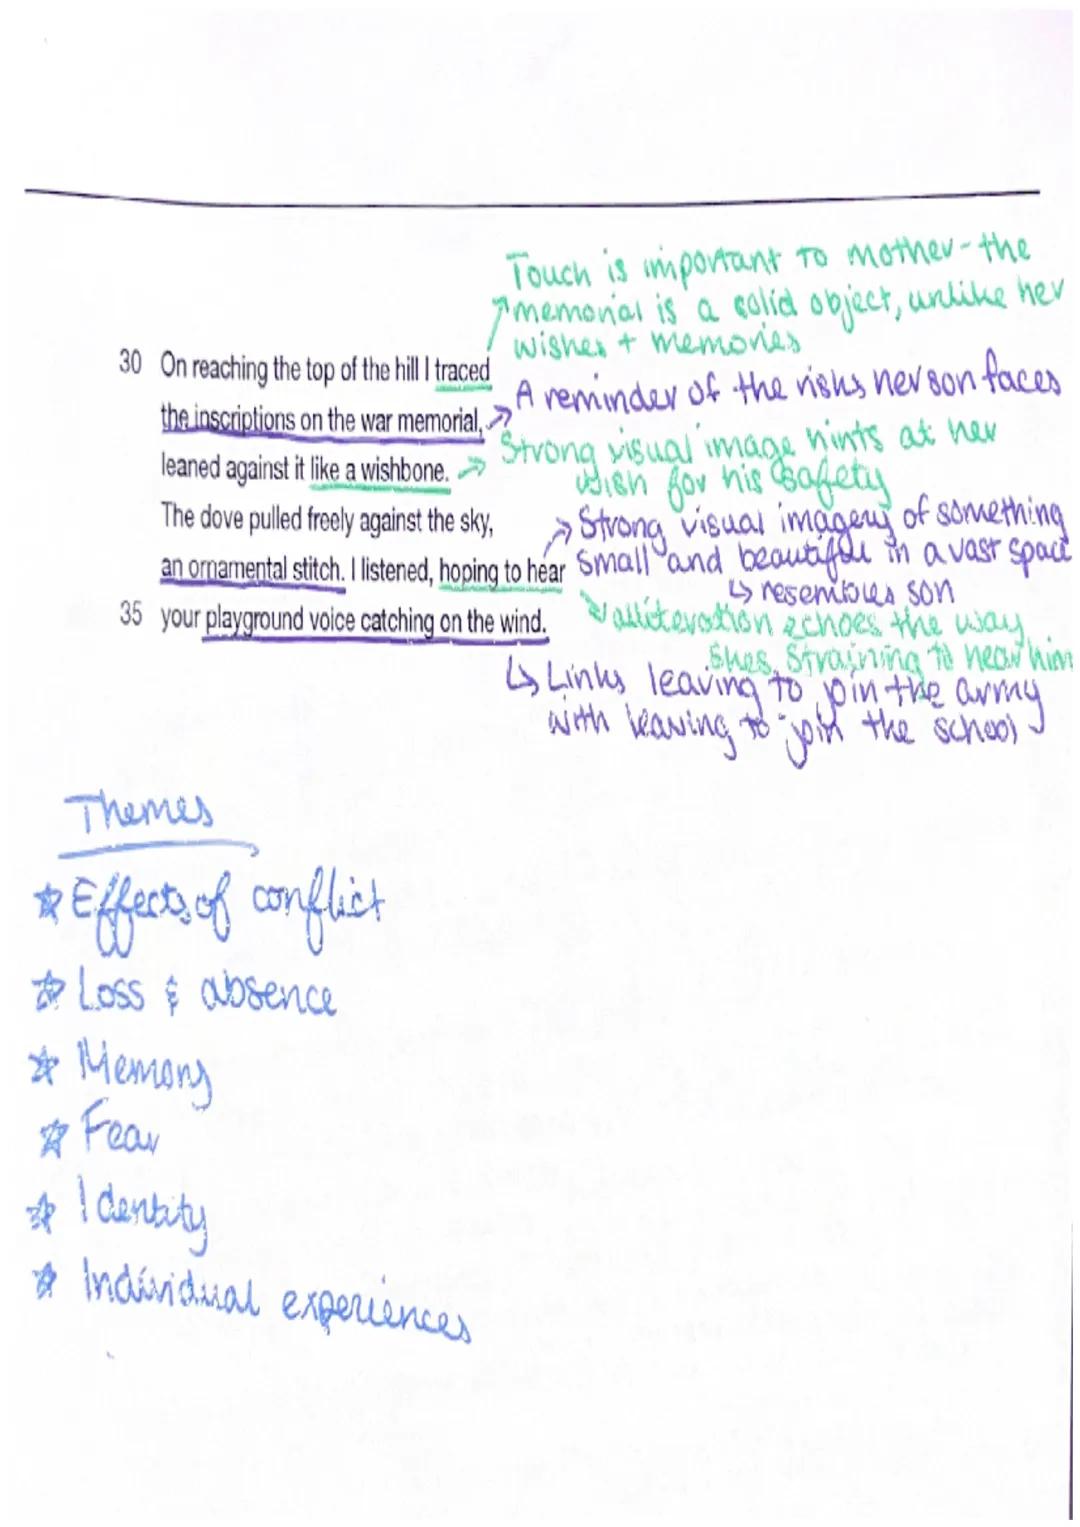 Touch is important to mother - the
memorial is a solid object, unlike her
wishes + memories
30 On reaching the top of the hill I traced
the inscriptions on the war memorial,
A reminder of the risks her son faces
leaned against it like a wishbone.
Strong visual image hints at her
wish for his safety
The dove pulled freely against the sky,
an ornamental stitch. I listened, hoping to hear
Strong visual imagery of something
small and beautiful in a vast space
resembles son
35 your playground voice catching on the wind.
alliteration echoes the way
shes straining to hear him
Links leaving to join the army
with leaving to join the school
Themes
Effects of conflict
Loss & absence
Memory
Fear
Identity
Individual experiences